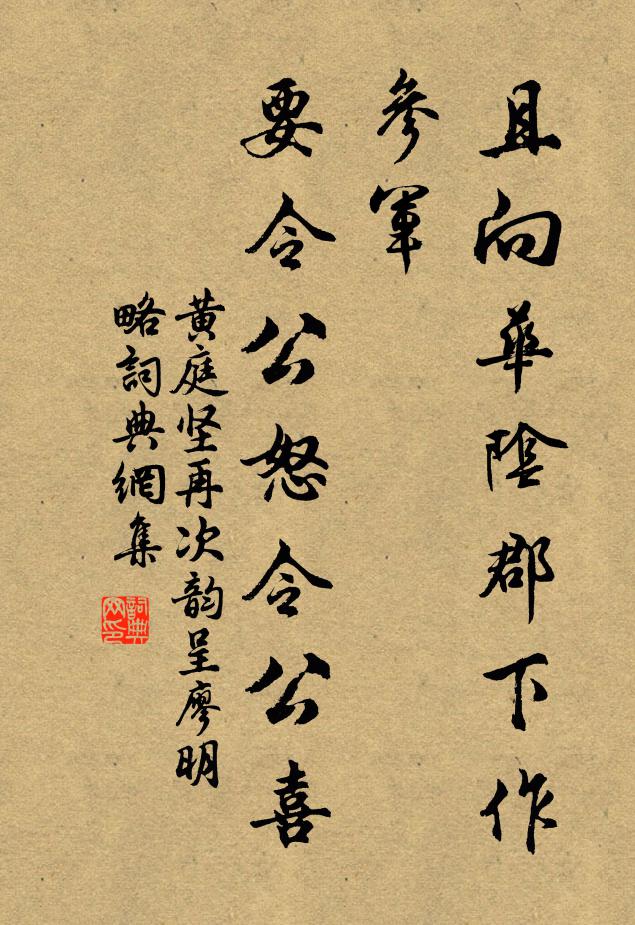 且向華陰郡下作
參軍
要令公怒令公喜
黄庭坚再次韵呈廖明
略詞典網集
詞典
网印